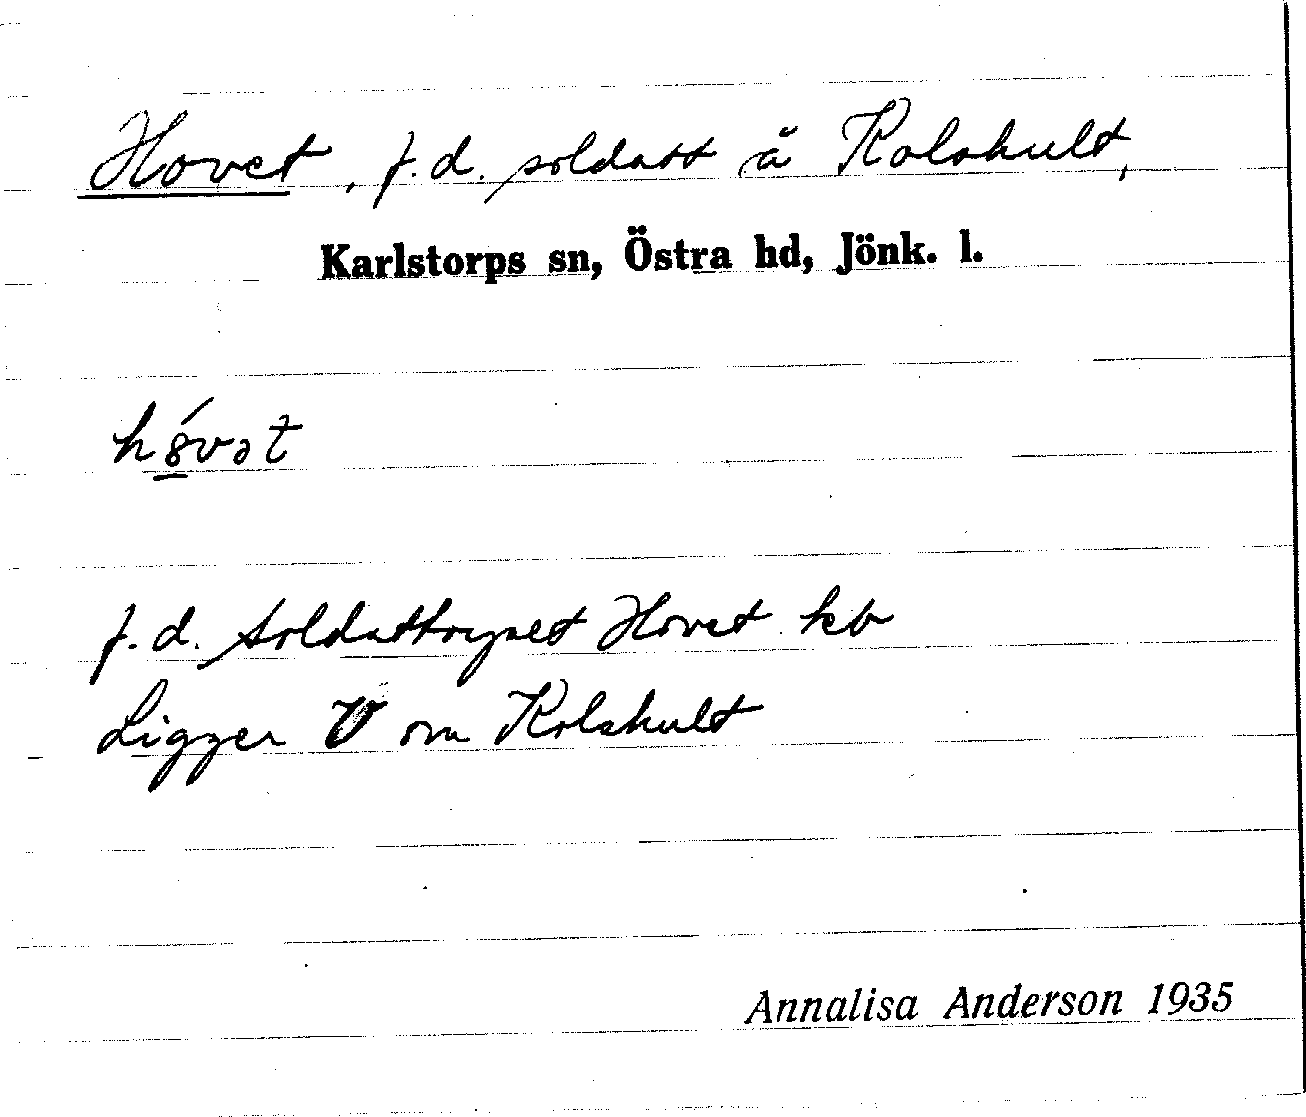 Hovet, f.d. soldatt å Kolshult,
Karlstorps sn, Östra hd, Jönk. l.
hȣ́vət
f.d. Soldattorpet Hovet kb
Ligger V om Kolshult
Annalisa Anderson 1935